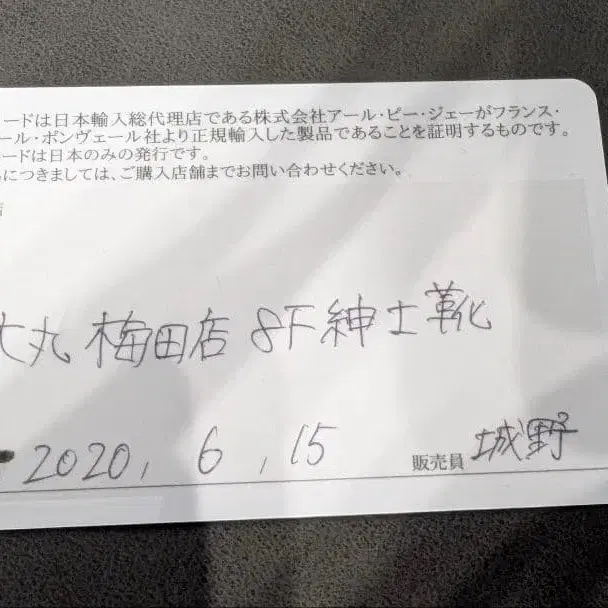 ードは日本輸入総代理店である株式会社アール・ピー・ジェーがフランス・
ール・ボンヴェール社より正規輸入した製品であることを証明するものです。
ードは日本のみの発行です。
につきましては、ご購入店舗までお問い合わせください。
大丸 梅田店 8F 紳士靴
2020, 6, 15 販売員 城野